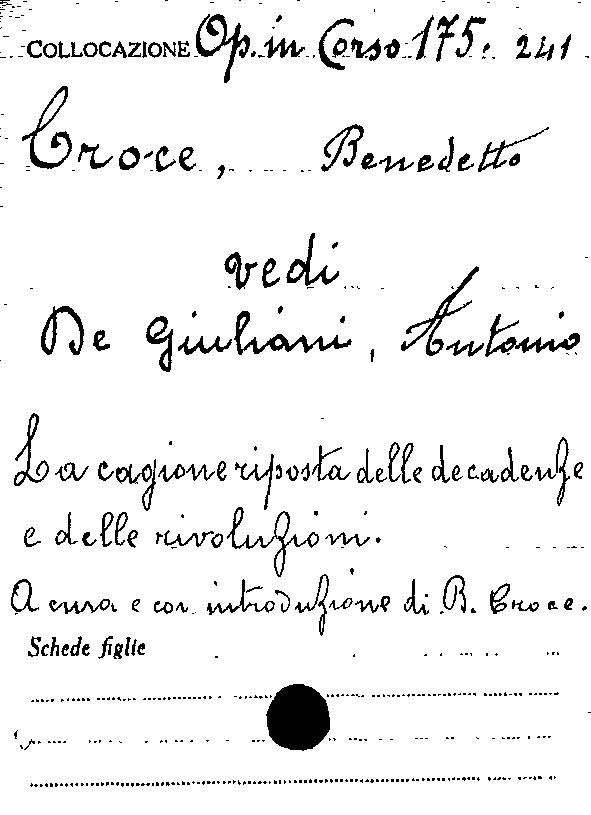 COLLOCAZIONE Op. in Corso 175. 241
Croce, Benedetto
vedi
De Giuliani, Antonio
La cagione riposta delle decadenze
e delle rivoluzioni.
A cura e con introduzione di B. Croce.
Schede figlie